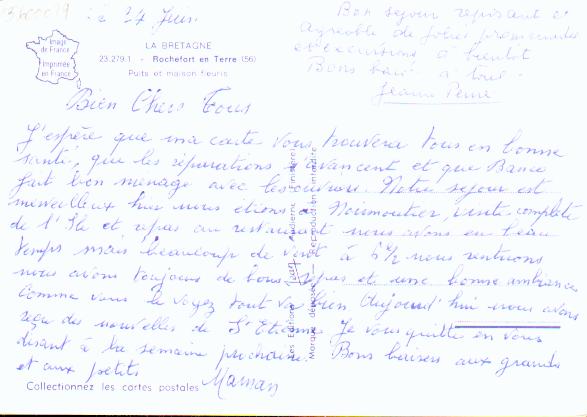 le 24 Juin
Bon sejour reposant et
agreable de jolies promenades
et excursions, à bientot
Bons baisers à tous.
Image
de France
Imprimée
en France
LA BRETAGNE
23.279.1 - Rochefort en Terre (56)
Puits et maison fleuris
Bien Chers Tous
J'espère que ma carte vous trouvera tous en bonne
santé, que les réparations avancent et que
fait bon ménage avec les ouvriers. Notre sejour est
merveilleux hier nous etions a Noirmoutier, visite complète
de l'Ile et repas au restaurant nous avons eu beau
temps mais beaucoup de vent à nous rentrions
nous avons toujours de bons repas et une bonne ambiance
Comme vous le voyez tout va bien Aujourd'hui nous avons
reçu des nouvelles de St Etienne Je vous quitte en vous
disant à la semaine prochaine. Bons baisers aux grands
et aux petits
Maman
Collectionnez les cartes postales
Les Editions
Marque déposée - Reproduction interdite